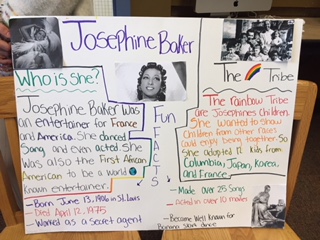 Josephine Baker
Who is she?
Josephine Baker was
an entertainer for France
and America. She danced
Sang and even acted. She
was also the First African
American to be a world
Known entertainer.
Fun
FACTS
- Born June 13, 1906 in St. Louis
- Died April 12, 1975
- Worked as a Secret agent
The Tribe
The rainbow Tribe
are Josephine's Children.
She wanted to show
Children from other races
could enjoy being together. So
She adopted 12 kids From
Columbia, Japan, Korea,
and France.
- Made over 25 Songs
- Acted in over 10 movies
- Became Well Known for
Banana Skirt dance